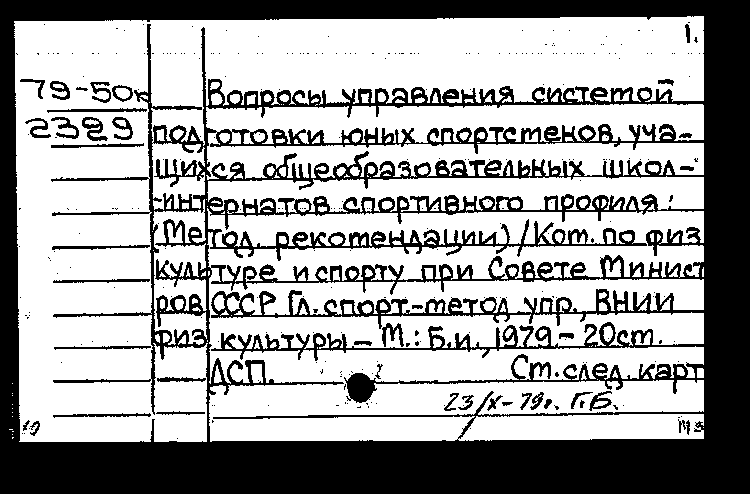 1.
79-50к Вопросы управления системой
2329 подготовки юных спортсменов, уча-
щихся общеобразовательных школ-
-интернатов спортивного профиля:
(Метод. рекомендации) / Ком. по физ
культуре и спорту при Совете Минист
ров СССР. Гл. спорт.-метод упр., ВНИИ
физ. культуры - М.: Б.и., 1979.- 20см.
ДСП. Ст. след. карт
23/X-79г. Г.Б.